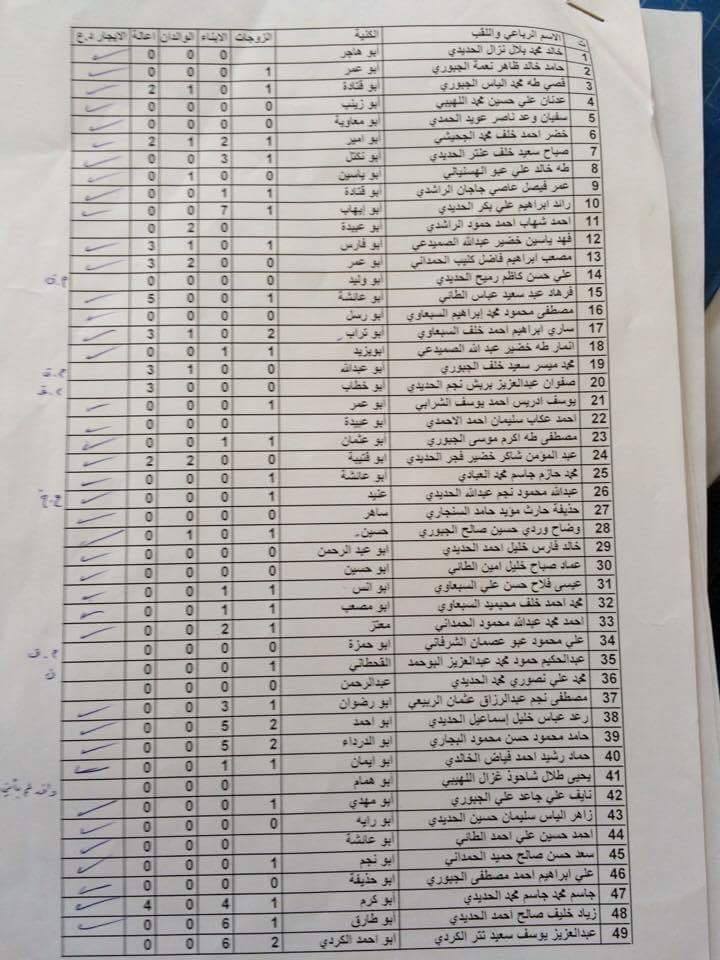 ت الاسم الرباعي واللقب الكنية الزوجات الابناء الوالدان اعالة الايجار د.ع
1 خالد محمد بلال نزال الحديدي ابو هاجر 0 0 0
2 حامد خالد ظاهر نعمة الجبوري ابو عمر 1 0 0 0
3 قصي طه محمد الياس الجبوري ابو قتادة 1 0 1 2
4 عدنان علي حسين محمد اللهيبي ابو زينب 0 0 0 0
5 سفيان وعد ناصر عويد الحمدي ابو معاوية 0 0 0 0
6 خضر احمد خلف محمد الجحيشي ابو امير 1 2 1 2
7 صباح سعيد خلف عنتر الحديدي ابو نكتل 1 3 0 0
8 طه خالد علي عبو الهسنياني ابو ياسين 0 0 1 0
9 عمر فيصل عاصي جاجان الراشدي ابو قتادة 1 1 0 0
10 رائد ابراهيم علي بكر الحديدي ابو إيهاب 1 7 0 0
11 احمد شهاب احمد حمود الراشدي ابو عبيدة 0 2 0
12 فهد ياسين خضير عبدالله الصميدعي ابو فارس 1 0 1 3
13 مصعب ابراهيم فاضل كليب الحمداني ابو عمر 0 0 2 3
14 علي حسن كاظم رميح الحديدي ابو وليد 0 0 0 0
15 فرهاد عبد سعيد عباس الطائي ابو عائشة 1 0 0 5
16 مصطفى محمود محمد إبراهيم السبعاوي ابو رسل 0 0 0 0
17 ساري ابراهيم احمد خلف السبعاوي ابو تراب 2 0 1 3
18 انمار طه خضير عبد الله الصميدعي ابويزيد 1 1 0 0
19 محمد ميسر سعيد خلف الجبوري ابو عبدالله 0 0 1 3
20 صفوان عبدالعزيز بريش نجم الحديدي ابو خطاب 0 0 0 3
21 يوسف ادريس احمد يوسف الشرابي ابو عمر 1 0 0 0
22 احمد عكاب سليمان احمد الاحمدي ابو عبيدة 0 0 0
23 مصطفى طه اكرم موسى الجبوري ابو عثمان 1 1 0 0
24 عبد المؤمن شاكر خضير فجر الحديدي ابو قتيبة 0 0 2 2
25 محمد حازم جاسم محمد العبادي ابو عائشة 1 0 0 0
26 عبدالله محمود نجم عبدالله الحديدي عنيد 1 0 0 0
27 حذيفة حارث مؤيد حامد السنجاري ساهر 0 0 0 0
28 وضاح وردي حسين صالح الجبوري حسين 1 0 1 0
29 خالد فارس خليل احمد الحديدي ابو عبد الرحمن 0 0 0 0
30 عماد صباح خليل امين الطائي ابو حسين 0 0 0 0
31 عيسى فلاح حسن علي السبعاوي ابو انس 1 1 0 0
32 محمد احمد خلف محيميد السبعاوي ابو مصعب 1 1 0 0
33 احمد محمد عبدالله محمود الحمداني معتز 1 2 0 0
34 علي محمود عبو عصمان الشرفاني ابو حمزة 0 0 0 0
35 عبدالحكيم حمود محمد عبدالعزيز البوحمد القحطاني 1 0 0 0
36 محمد علي نصوري محمد الحديدي عبدالرحمن 0 0 0 0
37 مصطفى نجم عبدالرزاق عثمان الربيعي ابو رضوان 1 3 0 0
38 رعد عباس خليل إسماعيل الحديدي ابو احمد 2 5 0 0
39 حامد محمود حسن محمود البجاري ابو الدرداء 2 5 0 0
40 حماد رشيد احمد فياض الخالدي ابو ايمان 1 1 0 0
41 يحيى طلال شاحوذ غزال اللهيبي ابو همام 0 0 0
42 نايف علي جاعد علي الجبوري ابو مهدي 1 0 0 0
43 زاهر الياس سليمان حسين الحديدي ابو رايه 0 0 0 0
44 احمد حسين علي احمد الطائي ابو عائشة 0 0 0
45 سعد حسن صالح حميد الحمداني ابو نجم 1 0 0 0
46 علي ابراهيم احمد مصطفى الجبوري ابو حذيفة 0 0 0 0
47 جاسم محمد جاسم محمد الحديدي ابو كرم 1 4 0 4
48 زياد خليف صالح احمد الحديدي ابو طارق 1 6 0 0
49 عبدالعزيز يوسف سعيد تتر الكردي ابو احمد الكردي 2 6 0 0